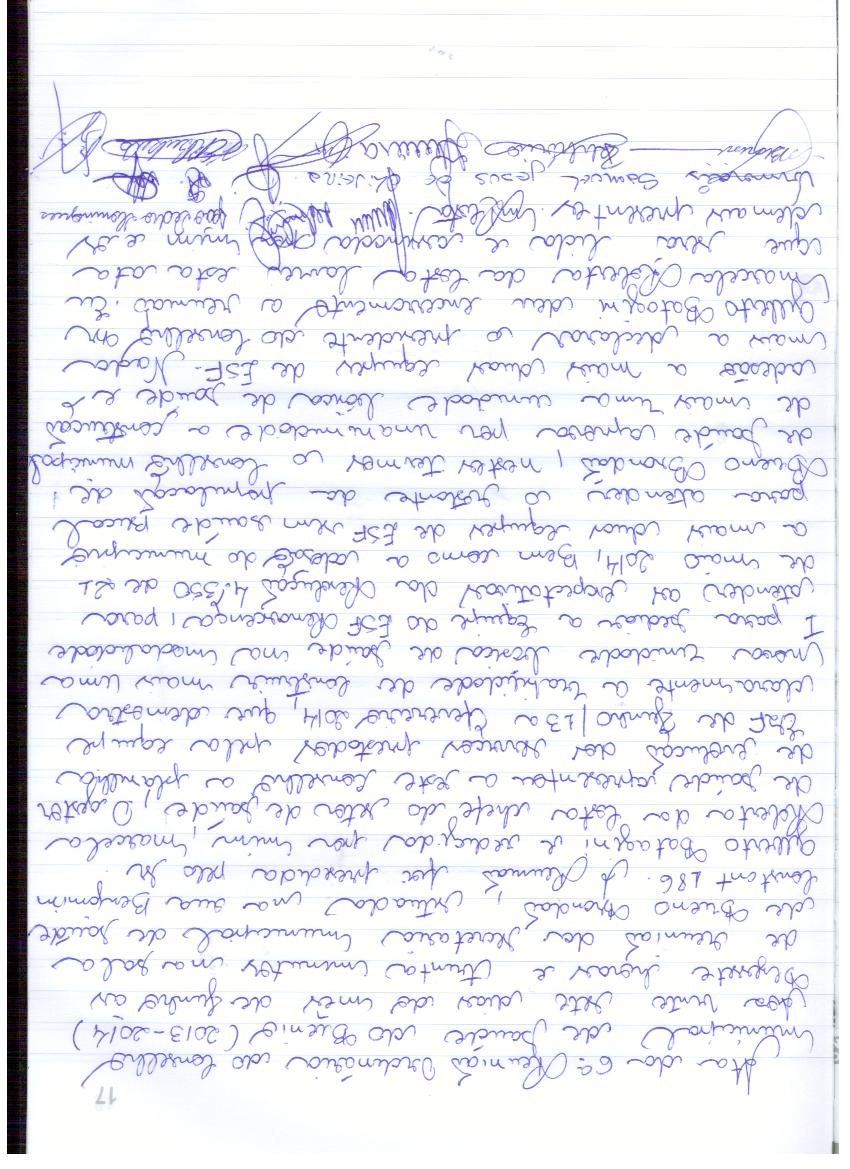 17
Ata da 6ª Reunião Ordinária do Conselho
Municipal de Saúde do Biênio (2013-2014)
Aos vinte sete dias do mes de Junho as
Dezessete horas e trinta minutos na sala
de reunião da Secretaria Municipal de Saúde
de Bueno Brandão, situada na rua Benjamim
Constant 186. A Reunião foi presidida pelo Sr
Gilberto Batagini e redigida por mim, Marcela
Roberta da Costa chefe do setor de saúde, O gestor
de saúde apresentou a este conselho a planilha
de evolução dos serviços prestados pela equipe
ESF de Junho/13 a Fevereiro 2014, que demostra
claramente a necessidade de construir mais uma
Nova Unidade Basica de saúde na modalidade
I para sediar a Equipe do ESF Renascença, para
atender as expectativas da Resolução 4.350 de 21
de maio de 2014, Bem como a adesão do municipio
a mais duas equipes de ESF sem saúde Bucal
para atender o restante da população de
Bueno Brandão, nestes termos o Conselho municipal
de saúde aprova por unanimidade a construção
de mais uma unidade básica de saúde e
adesão a mais duas equipes de ESF. Nada
mais a declarar o presidente do Conselho Sr
Gilberto Batagini deu encerramento a reunião. Eu
Marcela Roberta da Costa lavrei esta ata
que sera lida e assinada por mim e os
demais presentes.
Samuel Jesus de Oliveira